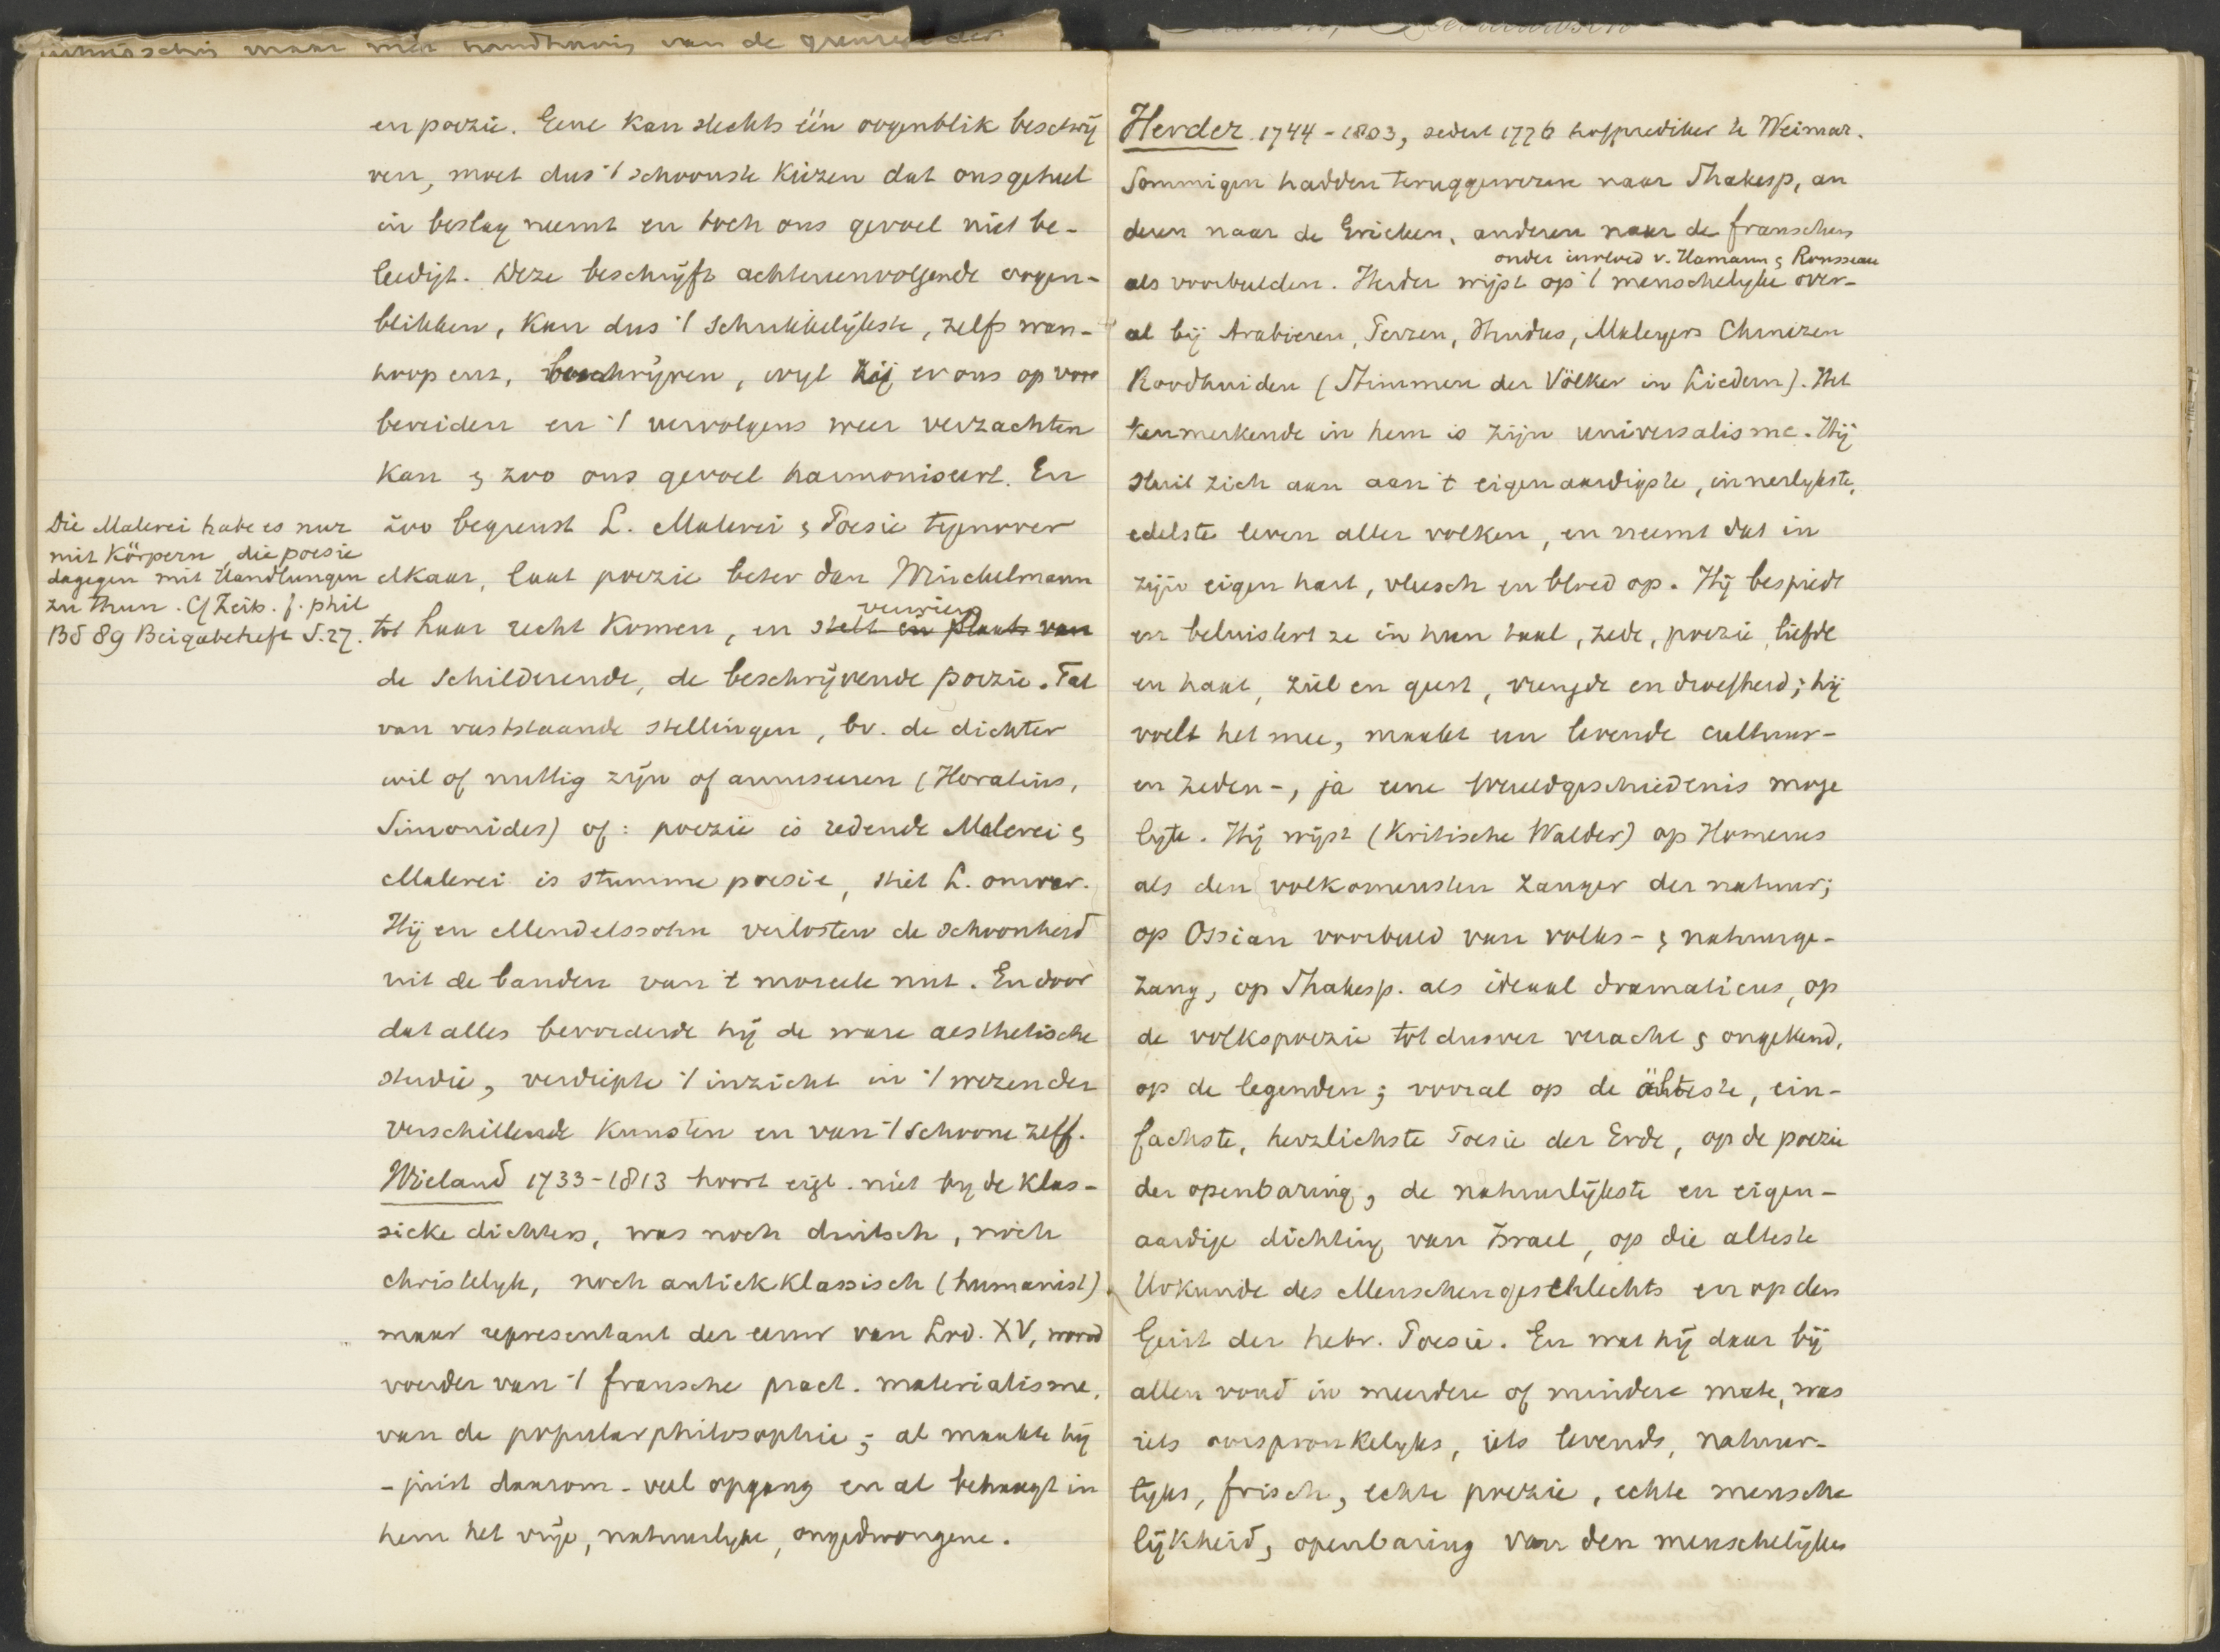 en poezie. Eene kan slechts één oogenblik beschrij
ven, moet dus 't schoonste kiezen dat ons geheel
in beslag neemt en toch ons gevoel niet be-
leedigt. Deze beschrijft achtereenvolgende oogen-
blikken, kan dus 't schrikkelijkste, zelfs wan-
hoop enz, beschrijven, wyl zij er ons op voor
bereiden en 't vervolgens weer verzachten
kan & zoo ons gevoel harmoniseert. En
zoo begrenst L. Malerei & Poesie tegenover
elkaar, laat poezie beter dan Winckelmann
verwierp
tot haar recht komen, en stelt in plaats van
de schilderende, de beschrijvende poezie. Tal
van vaststaande stellingen, bv. de dichter
wil of nuttig zijn of amuseeren (Horatius,
Simonides) of: poezie is redende Malerei &
Malerei is stumme poesie, stiet L. omver.
Hij en Mendelssohn verlosten de schoonheid
uit de banden van 't moreele nut. En door
dat alles bevorderde hij de ware aesthetische
studie, verdiepte 't inzicht in 't wezen der
verschillende kunsten en van 't schoone zelf.
Wieland 1733-1813 hoort eigl. niet by de klas-
sieke dichters, was noch duitsch, noch
christelyk, noch antiek klassisch (humanist)
maar representant der eeuw van Lod. XV, woord
voerder van 't fransche pract. materialisme,
van de popularphilosophie; al maakte hij
- juist daarom - veel opgang en al behaagt in
hem het vrije, natuurlyke, ongedwongene.
Die Malerei habe es nur
mit Körpern, die poesie
dagegen mit Handlungen
zu thun. Cf Zeits. f. phil
Bd 89 Beigabeheft S.27.
Herder 1744-1803, sedert 1776 hofprediker te Weimar.
Sommigen hadden teruggewezen naar Shakesp, an
deren naar de Grieken, anderen naar de franschen
onder invloed v. Hamann & Rousseau
als voorbeelden. Herder wijst op 't menschelyke over-
al bij Arabieren, Perzen, Hindus, Maleyers Chinezen
Roodhuiden (Stimmen der Völker in Liedern). Het
kenmerkende in hem is zijn universalisme. Hij
sluit zich aan aan 't eigenaardigste, innerlykste,
edelste leven aller volken, en neemt dat in
zijn eigen hart, vleesch en bloed op. Hij bespiedt
en beluistert ze in hun taal, zede, poezie, liefde
en haat, ziel en geest, vreugde en droefheid; hij
voelt het mee, maakt een levende cultuur-
en zeden-, ja eene wereldgeschiedenis moge
lyk. Hij wijst (Kritische Walder) op Homerus
als den volkomensten zanger der natuur;
op Ossian voorbeeld van volks- & natuurge-
zang, op Shakesp. als ideaal dramaticus, op
de volkspoezie tot dusver veracht & ongekend,
op de legenden; vooral op de älteste, ein-
fachste, herzlichste Poesie der Erde, op de poezie
der openbaring, de natuurlijkste en eigen-
aardige dichting van Israel, op die alteste
Urkunde des Menschengeschlechts en op den
Geist der hebr. Poesie. En wat hij daar bij
allen vond in meerdere of mindere mate, was
iets oorspronkelyks, iets levends, natuur-
lyks, frisch, echte poezie, echte mensche
lijkheid, openbaring van den menschelijken